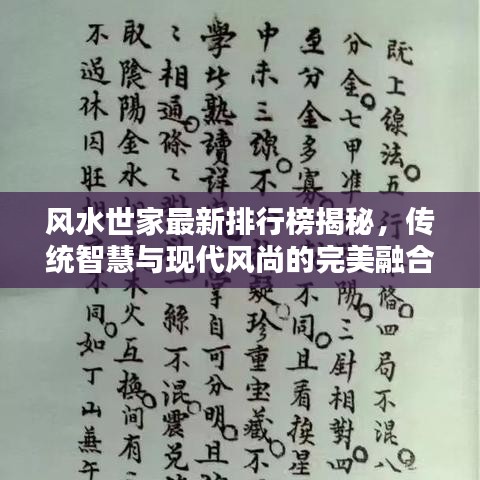 既上線法五行
四局不混八
分金七甲準
陽三針相對四
至分金多寡
不同且看挨星
中未三線不
疑珍重宝藏不
學此熟讀詳
掌自可分明且
〻相通條〻
絲不混震兌
取陰陽金水
火互換間有
不過休囚旺
同如丁山蕪午
风水世家最新排行榜揭秘，传
统智慧与现代风尚的完美融合